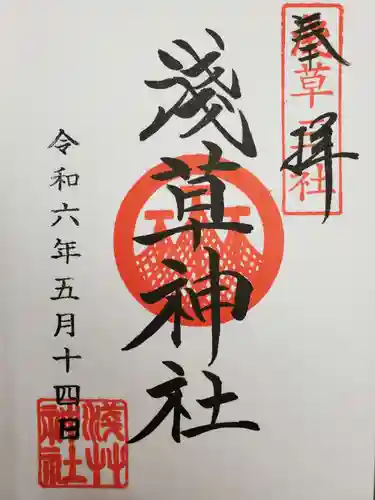 奉拝
淺草三社
淺草神社
令和六年五月十四日
淺草神社